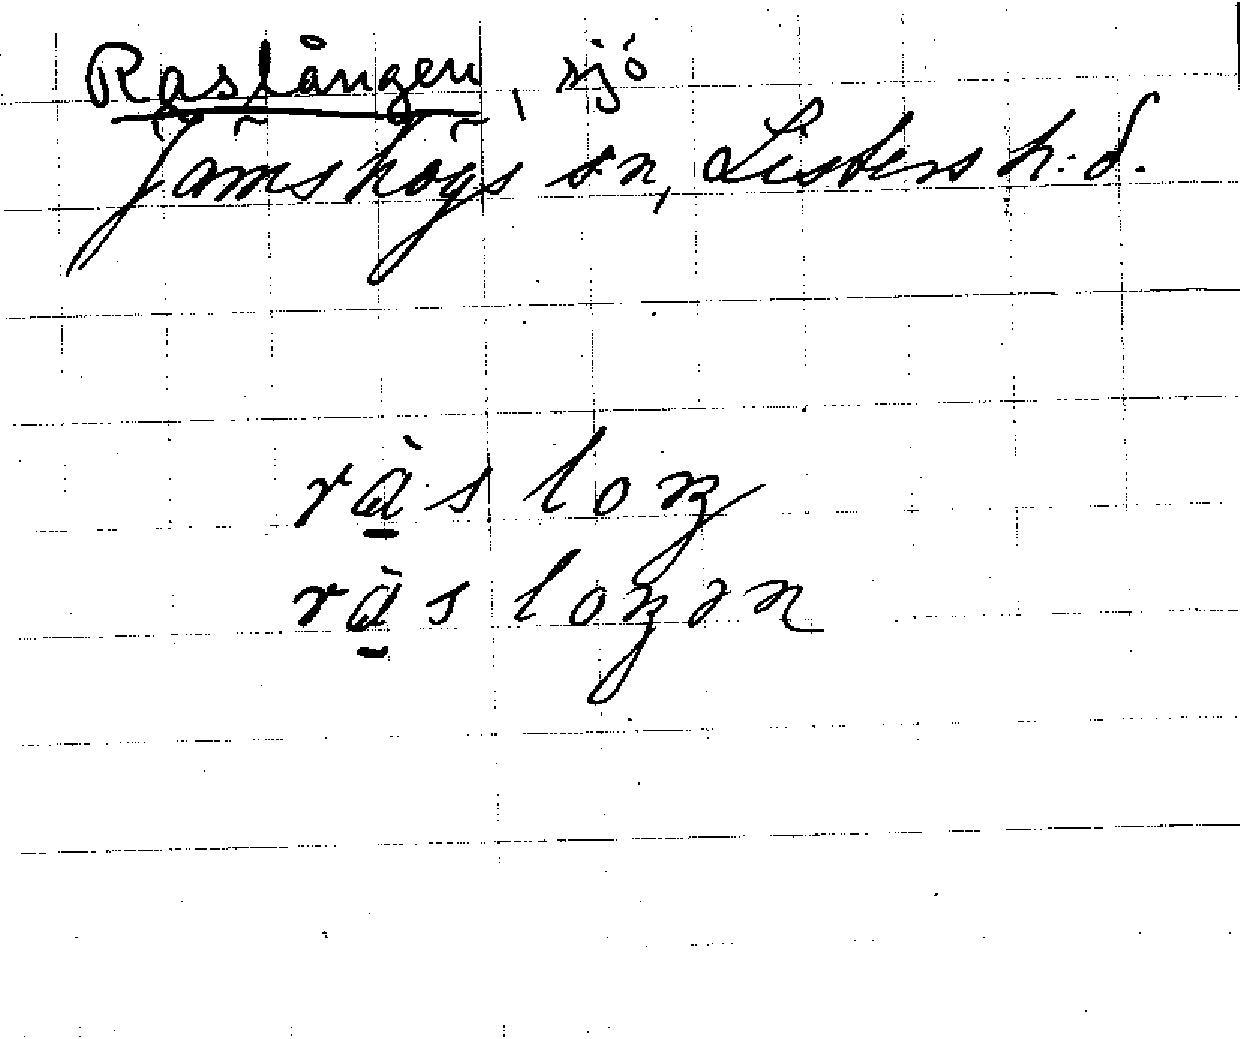 Raslången, sjö
Jämshögs sn, Listers h:d.
rà̱sloŋ
rà̱sloŋən